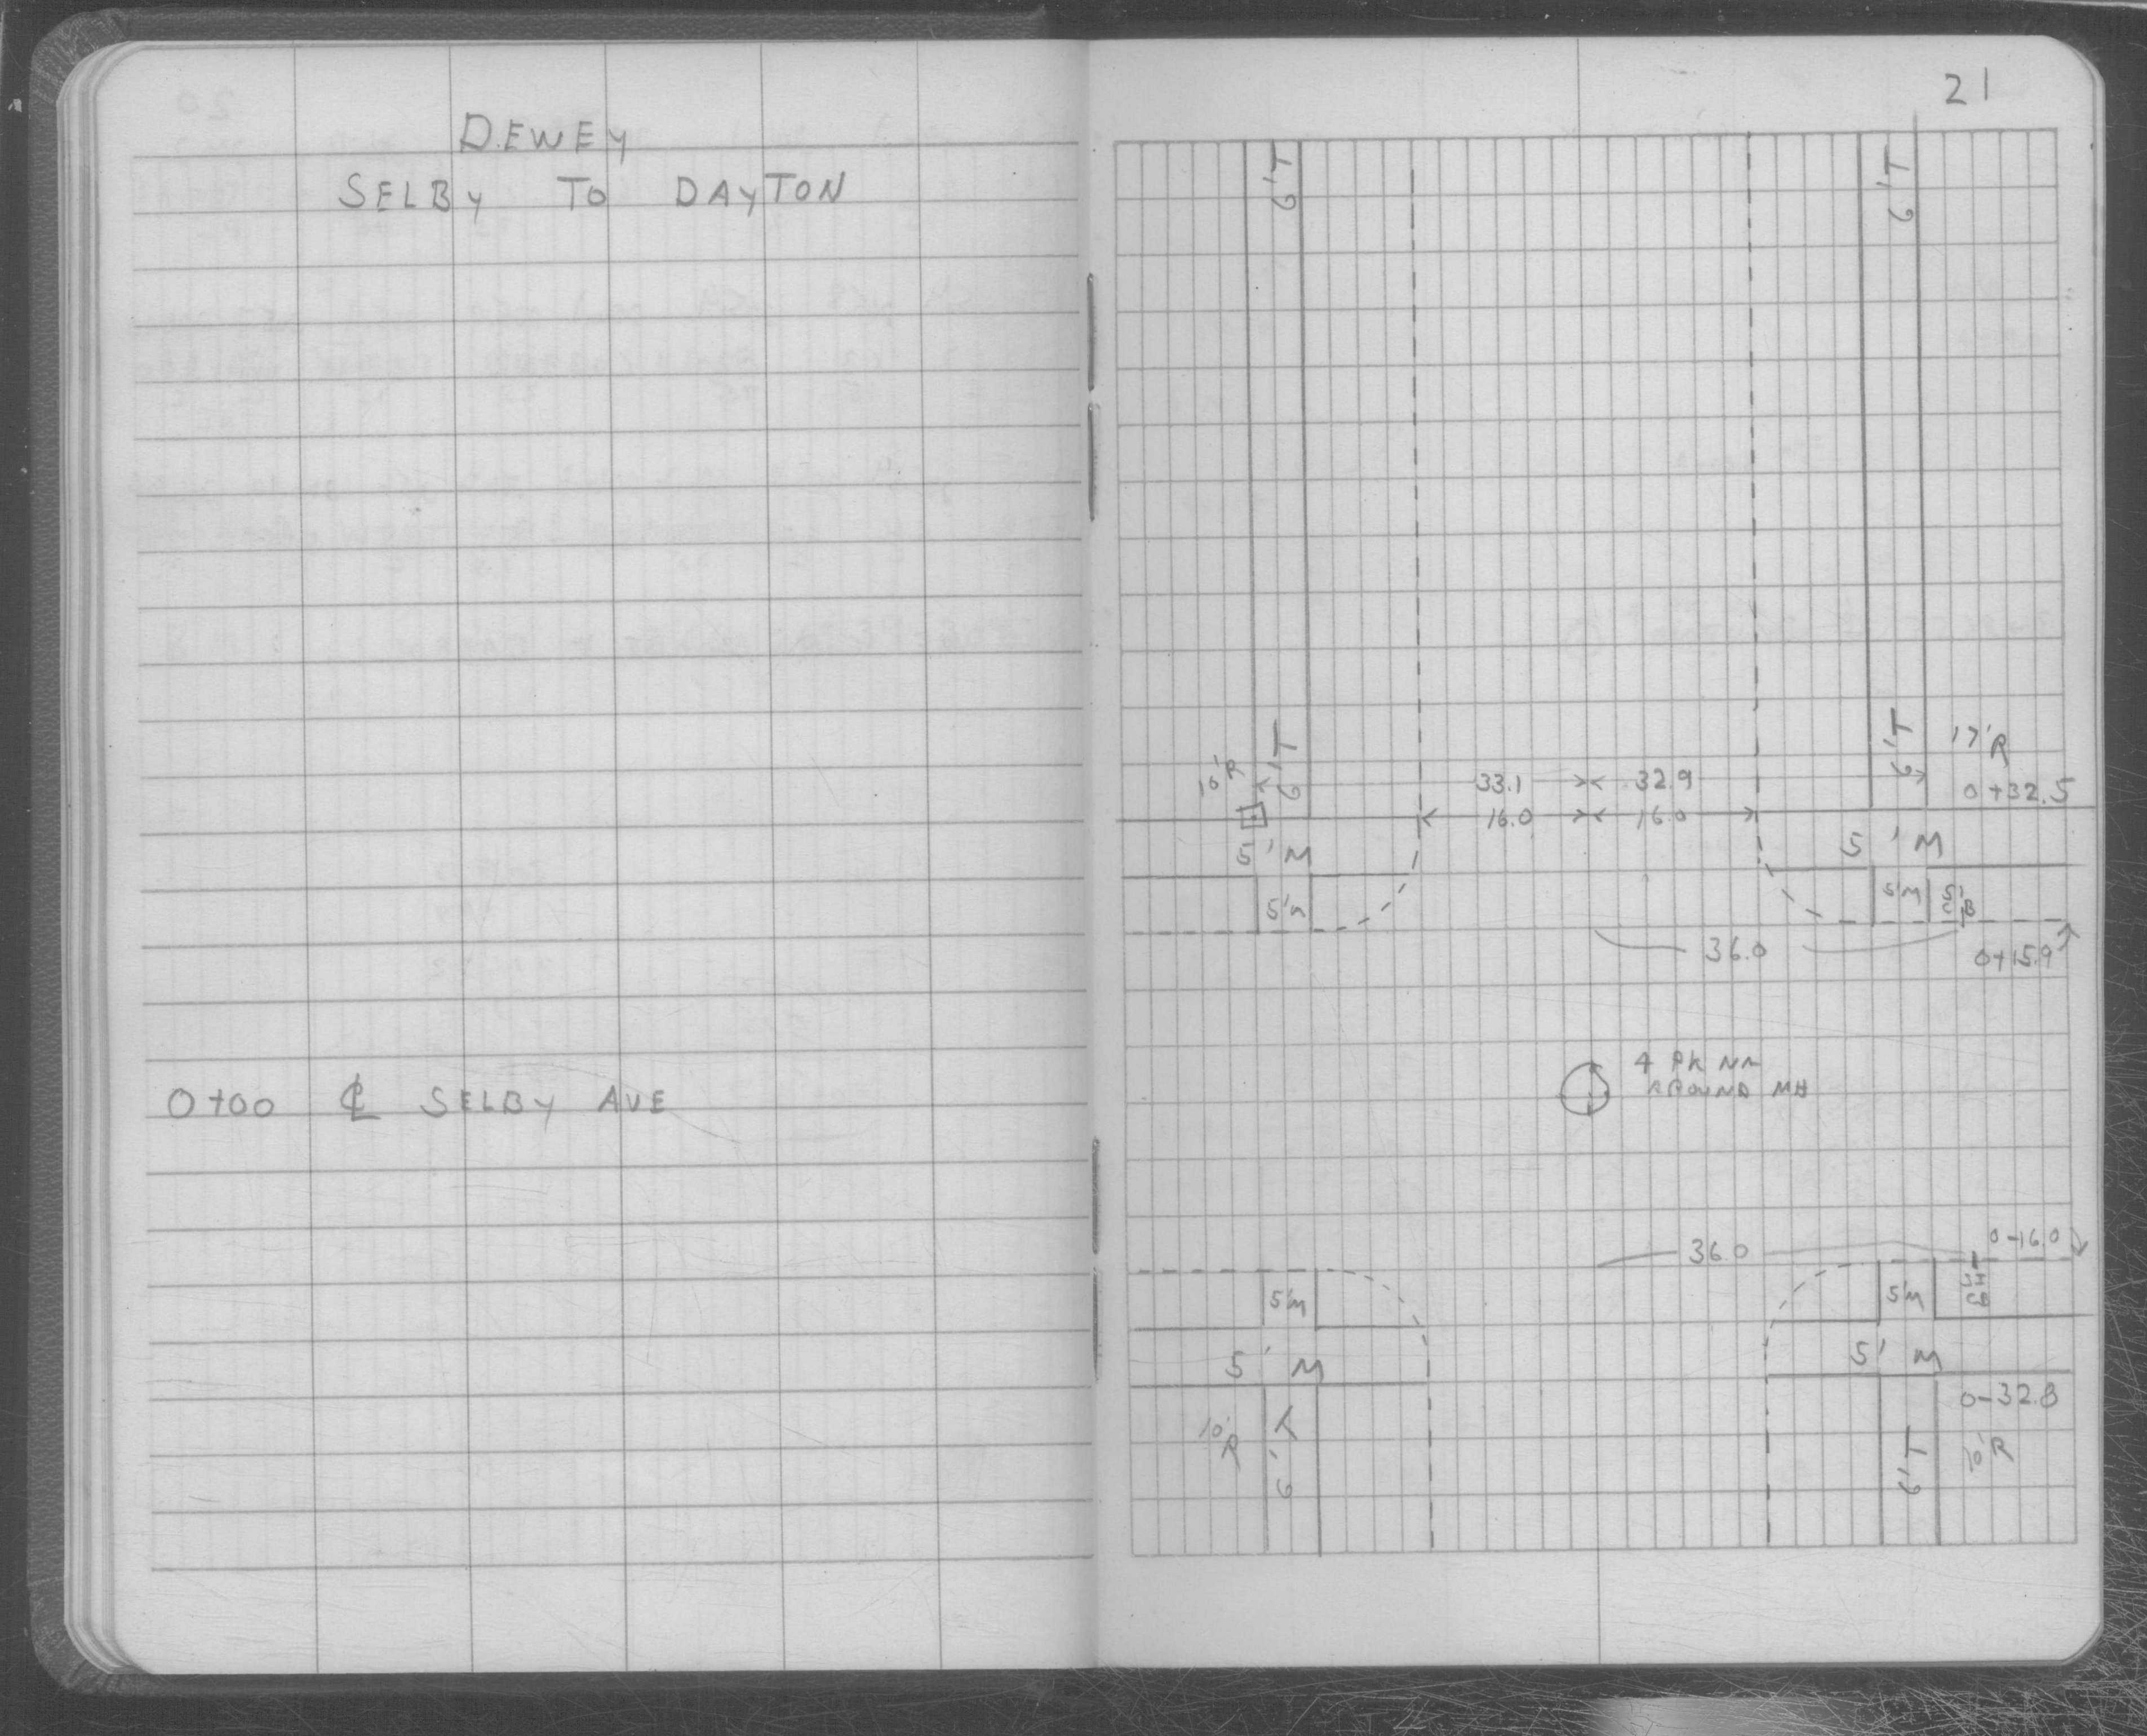 DEWEY
SELBY TO DAYTON
0+00 ℄ SELBY AVE
21
6'T
6'T
6'T
6'T
17'R
10'R
33.1
32.9
0+32.5
16.0
16.0
5'M
5'M
5'M
5'M
CB
36.0
0+15.9
4 PK
AROUND MH
36.0
0-16.0
5'M
5'M
CB
5'M
5'M
0-32.8
10'R
6'T
6'T
10'R